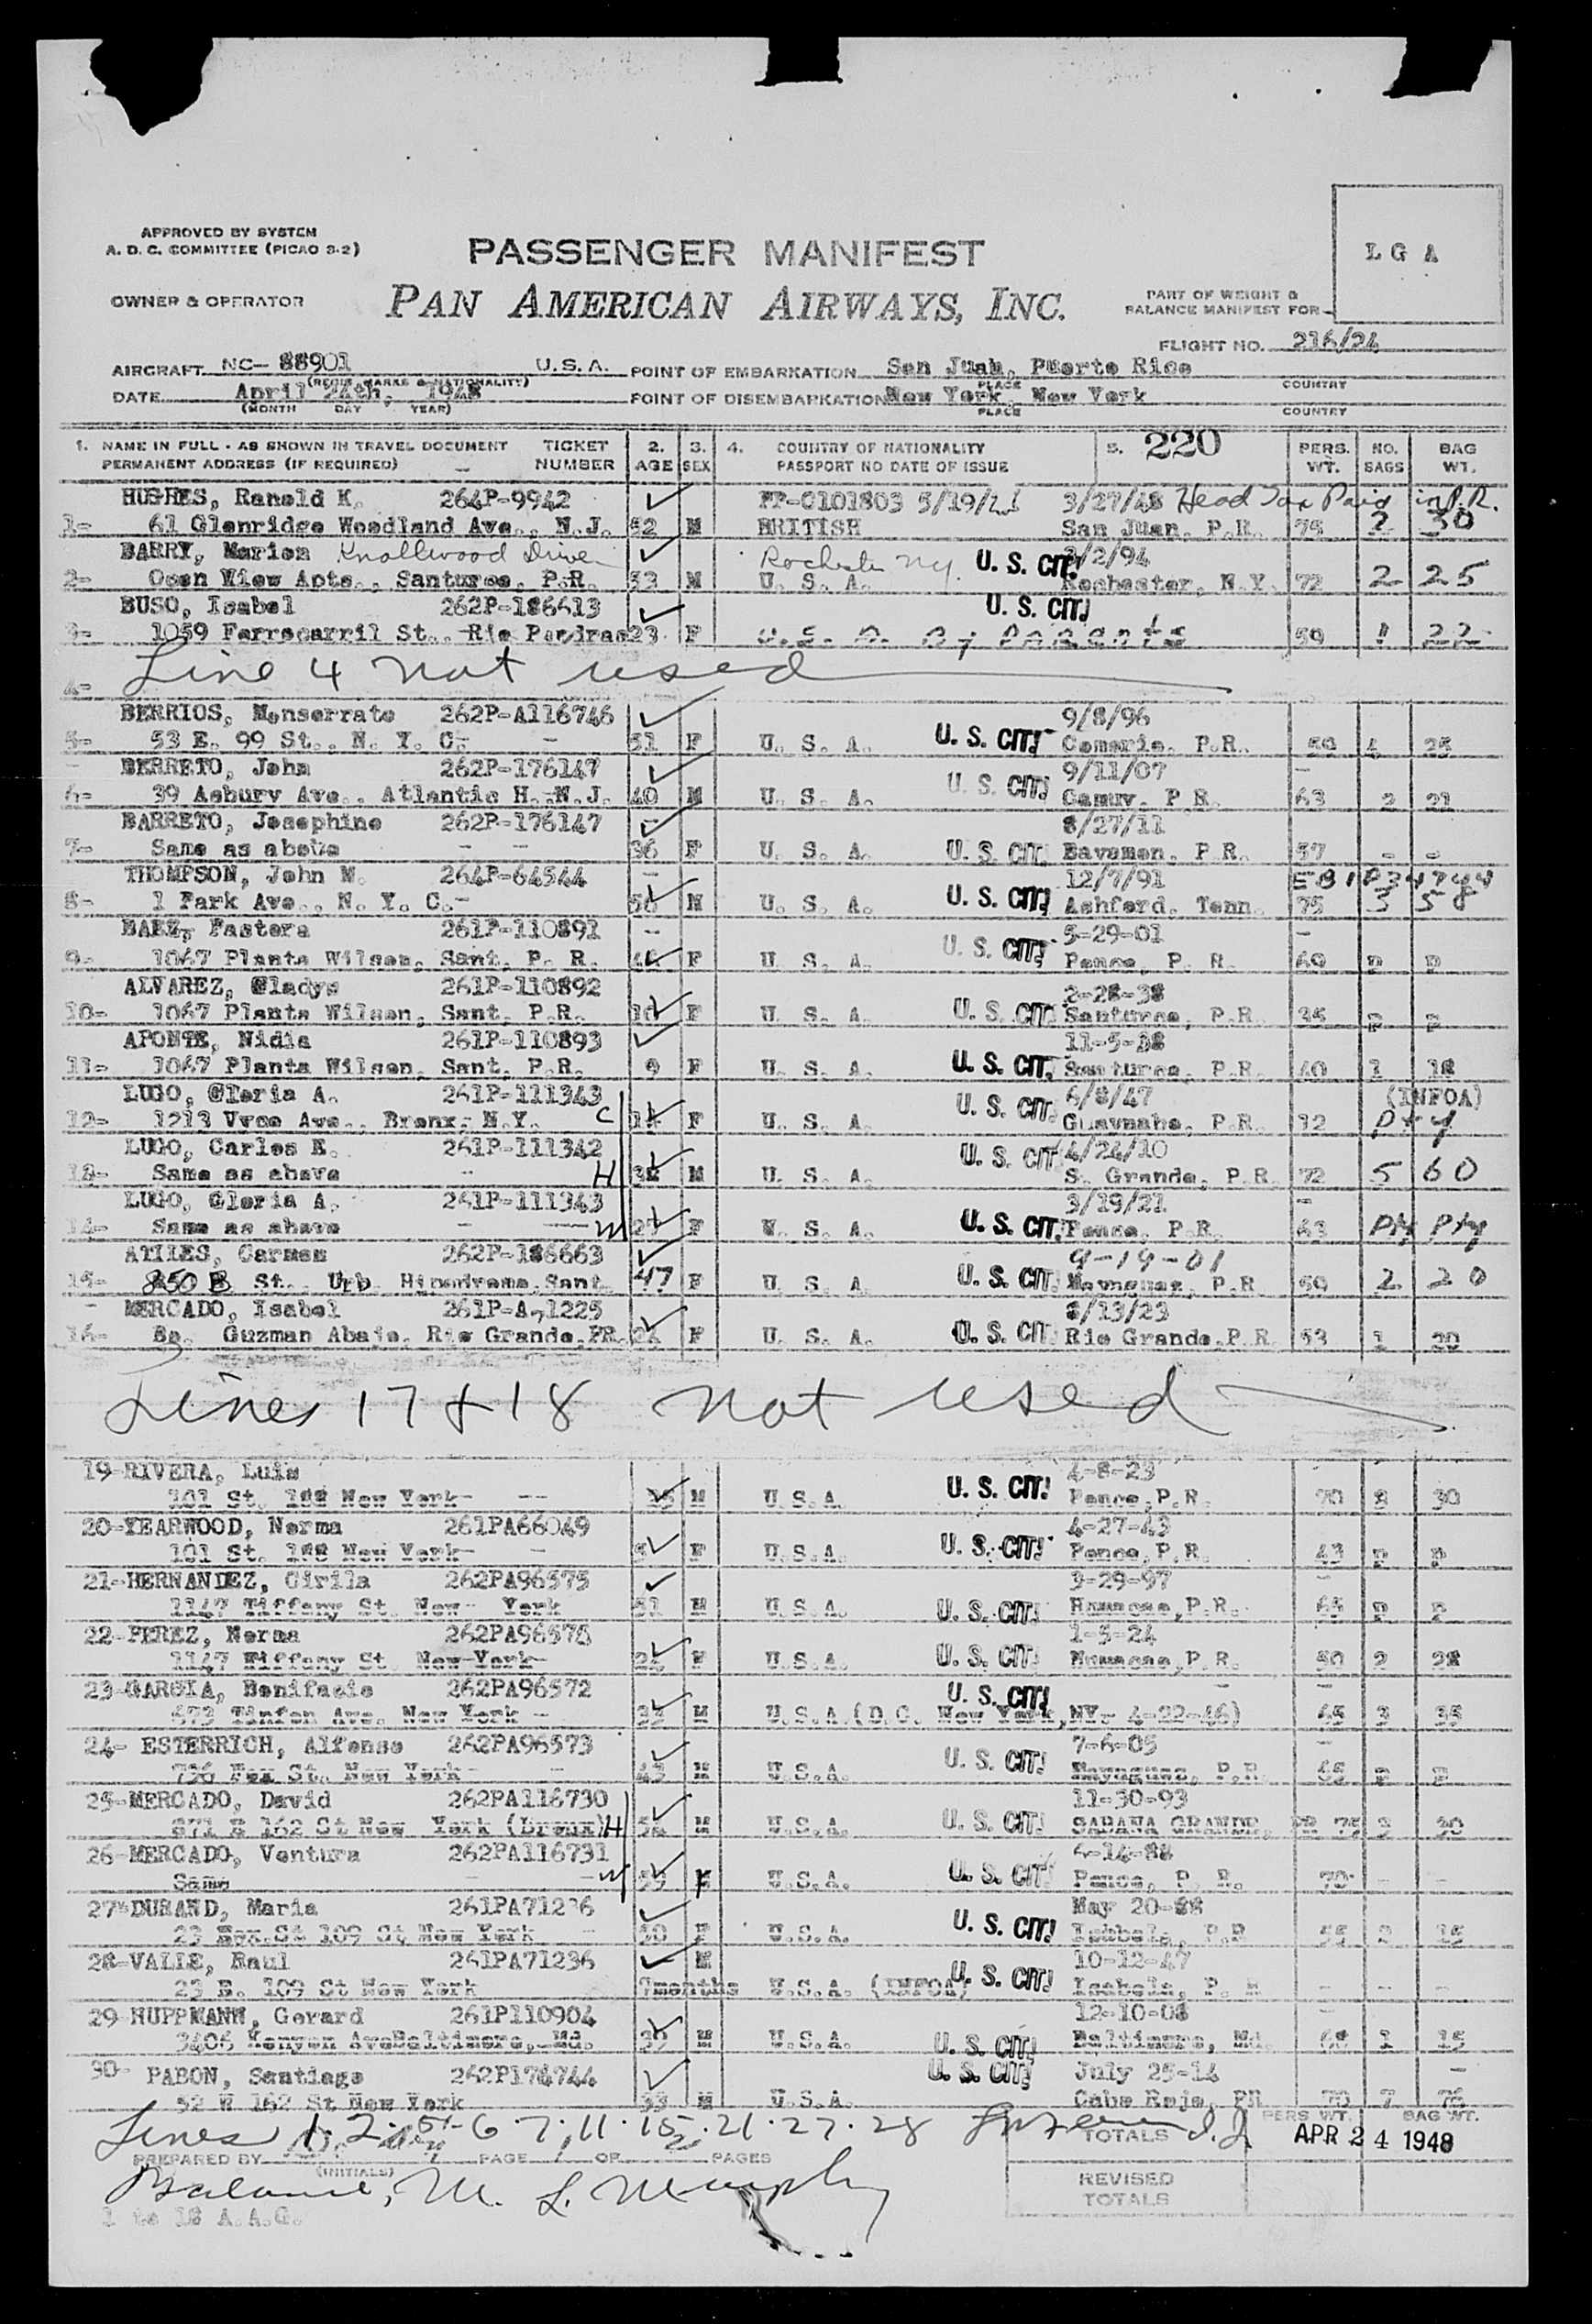 APPROVED BY SYSTEM
A. D. C. COMMITTEE (PICAO S-2)
PASSENGER MANIFEST
LGA
OWNER & OPERATOR
PAN AMERICAN AIRWAYS, INC.
PART OF WEIGHT &
BALANCE MANIFEST FOR
FLIGHT NO. 216/24
AIRCRAFT NC- 88901 U.S.A. POINT OF EMBARKATION San Juan, Puerto Rico
(REGIS. MARKS & NATIONALITY) PLACE COUNTRY
DATE April 24th, 1948 POINT OF DISEMBARKATION New York, New York
(MONTH DAY YEAR) PLACE COUNTRY
1. NAME IN FULL - AS SHOWN IN TRAVEL DOCUMENT TICKET 2. 3. 4. COUNTRY OF NATIONALITY 5. 220 PERS. NO. BAG
PERMANENT ADDRESS (IF REQUIRED) NUMBER AGE SEX PASSPORT NO DATE OF ISSUE WT. BAGS WT.
HUGHES, Ranald K. 264P-9942 PP-C101803 3/27/48 Head Tax Paid in P.R.
1- 61 Glenridge Woodland Ave., N.J. 52 M BRITISH San Juan, P.R. 75 2 30
BARRY, Marion Knollwood Drive Rochester NY. U. S. CIT. 2/94
2- Ocen View Apts., Santurce, P.R. 53 M U. S. A. Rochester, N.Y. 72 2 25
BUSO, Isabel 262P-186613 U. S. CIT.
3- 1059 Ferrocarril St., Rio Peidras 23 F U.S.A. By Parents 50 1 22
4- Line 4 not used
BERRIOS, Monserrate 262P-A116746 9/8/96
5- 53 E. 99 St., N. Y. C. 51 F U. S. A. U. S. CIT. Comerio, P.R. 50 4 25
BERRETO, John 262P-176147 9/11/07
6- 39 Asbury Ave., Atlantic H., N.J. 40 M U. S. A. U. S. CIT. Camuy, P.R. 63 2 21
BARRETO, Josephine 262P-176147 8/27/11
7- Same as above 36 F U. S. A. U. S. CIT. Bayamon, P.R. 57 - -
THOMPSON, John W. 264P-64544 12/7/91 EB1P34744
8- 1 Park Ave., N. Y. C. 56 M U. S. A. U. S. CIT. Ashford, Tenn. 75 3 58
BAEZ, Pastora 261P-110891 5-29-01
9- 1067 Planta Wilson, Sant, P. R. F U. S. A. U. S. CIT. Ponce, P. R. 69 P P
ALVAREZ, Gladys 261P-110892 2-28-38
10- 1067 Planta Wilson, Sant, P.R. 10 F U. S. A. U. S. CIT. Santurce, P.R. 35 P P
APONTE, Nidia 261P-110893 11-5-38
11- 1067 Planta Wilson, Sant, P.R. 9 F U. S. A. U. S. CIT. Santurce, P.R. 40 1 18
LUGO, Gloria A. 261P-111343 6/8/47 (INFOA)
12- 1213 Vyse Ave., Bronx, N.Y. C F U. S. A. U. S. CIT. Guaynabo, P.R. 12 Pty
LUGO, Carlos E. 261P-111342 4/24/10
13- Same as above H 38 M U. S. A. U. S. CIT S. Grande, P.R. 72 5 60
LUGO, Gloria A. 261P-111343 3/19/21
14- Same as above W 27 F U. S. A. U. S. CIT. Ponce, P.R. 63 Pty Pty
ATILES, Carmen 262P-186663 9-19-01
15- 850 B St., Urb. Hipodromo, Sant 47 F U. S. A. U. S. CIT. Mayaguez, P.R 50 2 20
MERCADO, Isabel 261P-A71225 8/13/23
16- Bo. Guzman Abajo, Rio Grande, PR. 24 F U. S. A. U. S. CIT. Rio Grande, P.R. 53 1 20
Lines 17 & 18 not used
19-RIVERA, Luis 4-8-23
101 St. 188 New York M U.S.A. U. S. CIT. Ponce, P.R. 70 2 30
20-YEARWOOD, Norma 261PA66049 4-27-43
101 St. 188 New York F U.S.A. U. S. CIT. Ponce, P.R. 43 P P
21-HERNANDEZ, Cirila 262PA96575 3-29-97
1147 Tiffany St. New York 51 M U.S.A. U. S. CIT. Humacao, P.R. 65 P P
22-PEREZ, Norma 262PA96576 1-5-24
1147 Tiffany St. New York 24 F U.S.A. U. S. CIT. Humacao, P.R. 50 2 28
23-GARCIA, Bonifacio 262PA96572 U. S. CIT.
673 Tinton Ave. New York 33 M U.S.A. (D.C. New York, NY- 4-22-46) 65 3 35
24- ESTERRICH, Alfonso 262PA96573 7-6-05
736 Fox St. New York 43 M U.S.A. U. S. CIT. Mayaguez, P.R. 65 P P
25-MERCADO, David 262PA116730 11-30-93
871 E 162 St New York (Bronx) H 54 M U.S.A. U. S. CIT. SABANA GRANDE, PR 75 3 30
26-MERCADO, Ventura 262PA116731 -14-88
Same W 59 F U.S.A. U. S. CIT. Ponce, P. R. 70 - -
27-DURAND, Maria 261PA71236 May 20-88
23 St 109 St New York F U.S.A. U. S. CIT. Isabela, P.R 55 2 15
28-VALLE, Raul 261PA71236 M 10-12-47
23 E. 109 St New York 7months U.S.A. (INFOA) U. S. CIT. Isabela, P. R - - -
29 HUPPMANN, Gerard 261P110904 12-10-08
3406 Kenyon Ave Baltimore, Md. 39 M U.S.A. U. S. CIT. Baltimore, Md. 68 1 15
30- PABON, Santiago 262P174744 U. S. CIT. July 25-14
52 W 162 St New York 33 M U.S.A. Cabo Rojo, PR 70 7 76
Lines 1. 2. 5. 6. 7. 11. 15. 21. 27. 28
PREPARED BY PAGE 1 OF 2 PAGES TOTALS PERS WT. BAG WT.
(INITIALS) APR 24 1948
Balance, M. L. Murphy
REVISED
TOTALS
1 to 18 A.A.G.